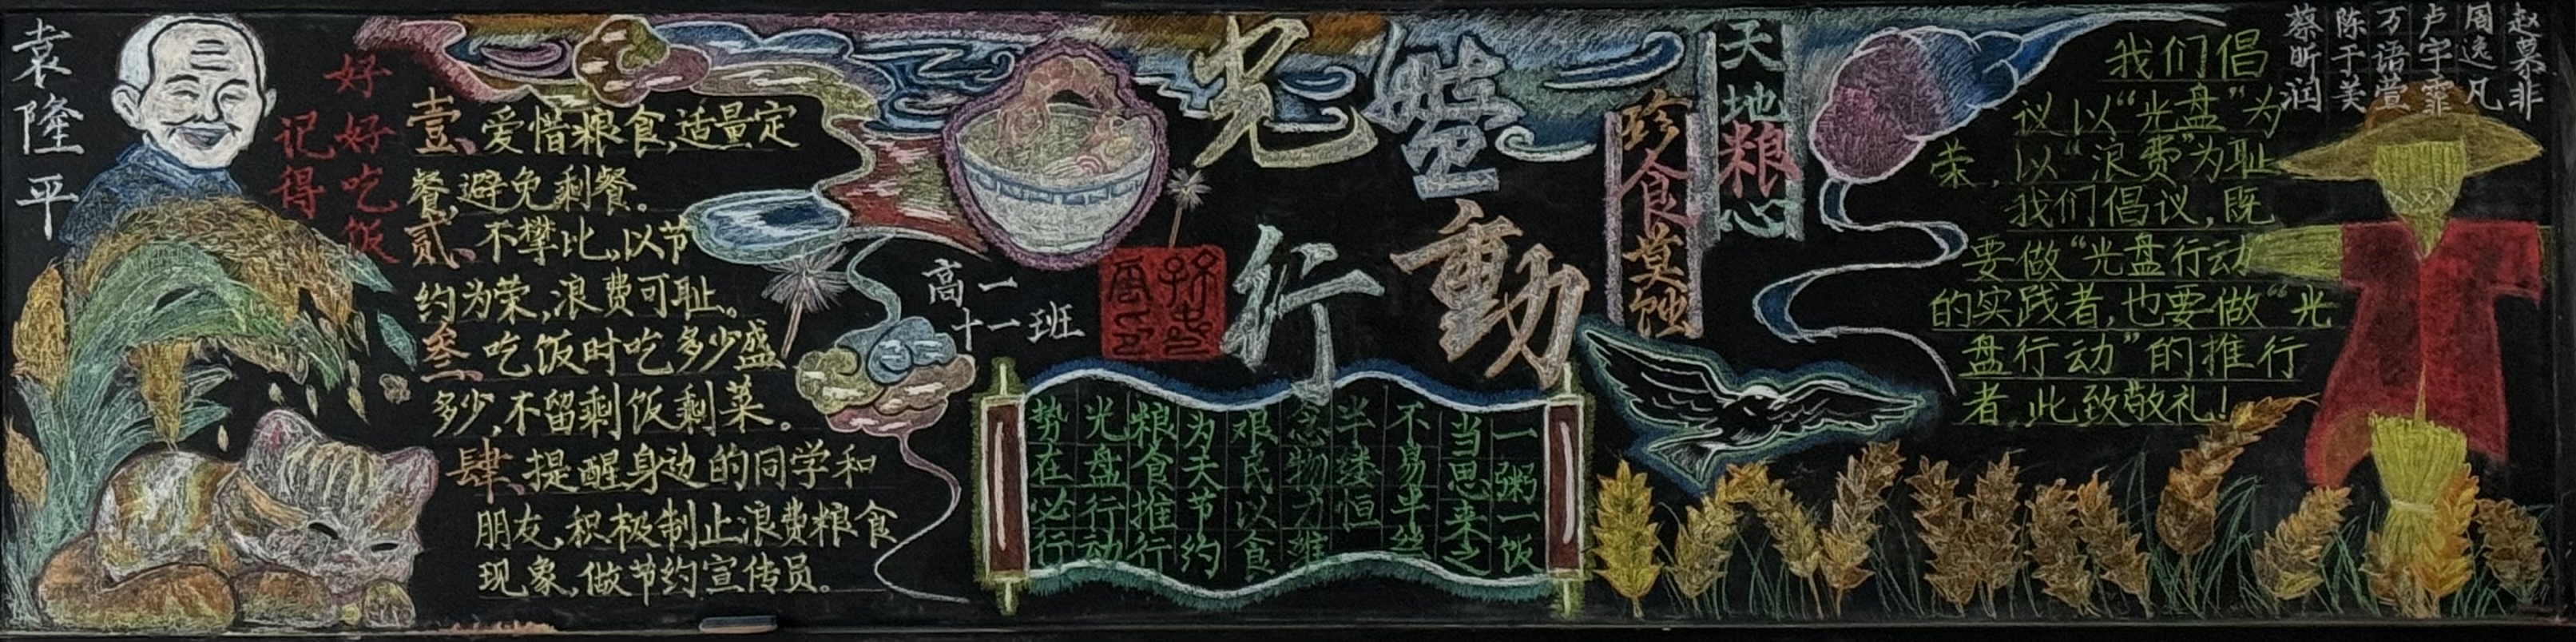 袁隆平
好好吃饭
记得
壹、爱惜粮食,适量定
餐,避免剩餐。
贰、不攀比,以节
约为荣,浪费可耻。
叁、吃饭时吃多少盛
多少,不留剩饭剩菜。
肆、提醒身边的同学和
朋友,积极制止浪费粮食
现象,做节约宣传员。
高一
十一班
光盘
行動
天地粮心
珍食莫蚀
一粥一饭
当思来之
不易半丝
半缕恒
念物力维
艰民以食
为天节约
粮食推行
光盘行动
势在必行
我们倡
议以“光盘”为
荣,以“浪费”为耻
我们倡议,既
要做“光盘行动
的实践者,也要做“光
盘行动”的推行
者,此致敬礼!
赵慕非
周逸凡
卢宇霏
万语萱
陈于美
蔡昕润